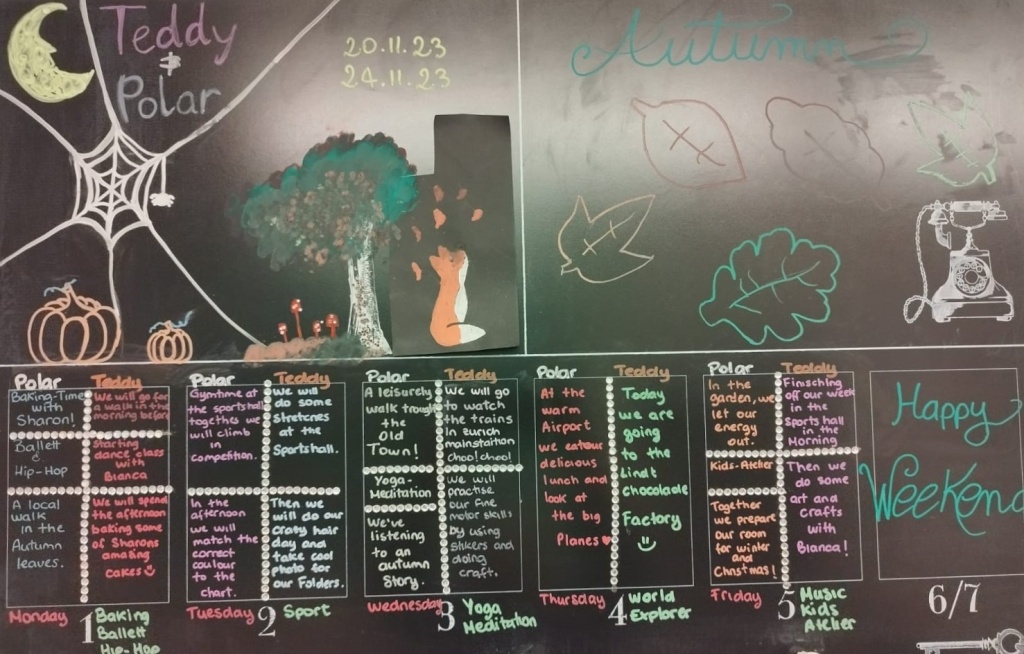 Teddy
&
Polar
20.11.23
24.11.23
Autumn
Polar
Baking-Time
with
Sharon!
Ballett
&
Hip-Hop
A local
walk
in the
Autumn
leaves.
Teddy
We will go for
a walk in the
morning before
Starting
dance class
with
Bianca
We will spend
the afternoon
baking some
of Sharons
amazing
cakes
Monday
1
Baking
Ballett
Hip-Hop
Polar
Gymtime at
the sportshall
together we
will climb
competition.
In the
afternoon
we will
match the
correct
coulour
to the
chart.
Teddy
We will
do some
Stretches
at the
Sportshall.
Then we
will do our
crazy hair
day and
take cool
photo for
our Folders.
Tuesday
2
Sport
Polar
A leisurely
walk trough
the
Old
Town!
Yoga-
Meditation
We've
listening
to an
autumn
Story.
Teddy
We will go
to watch
the trains
in Zurich
mainstaition
choo! choo!
We will
practise
our fine
motor skills
by using
stikers and
doing
craft.
Wednesday
3
Yoga
Meditation
Polar
At the
warm
Airport
we eat our
delicious
lunch and
look at
the big
Planes
Teddy
Today
we are
going
to the
Lindt
chocolade
Factory
Thursday
4
World
Explorer
Polar
In the
garden, we
let our
energy
out.
Kids-Atelier
Together
we prepare
our room
for winter
and
Christmas!
Teddy
Finisching
off our week
in the
Sports hall
in the
Morning
Then we
do some
art and
crafts
with
Bianca!
Friday
5
Music
Kids
Atelier
Happy
Weekend
6/7